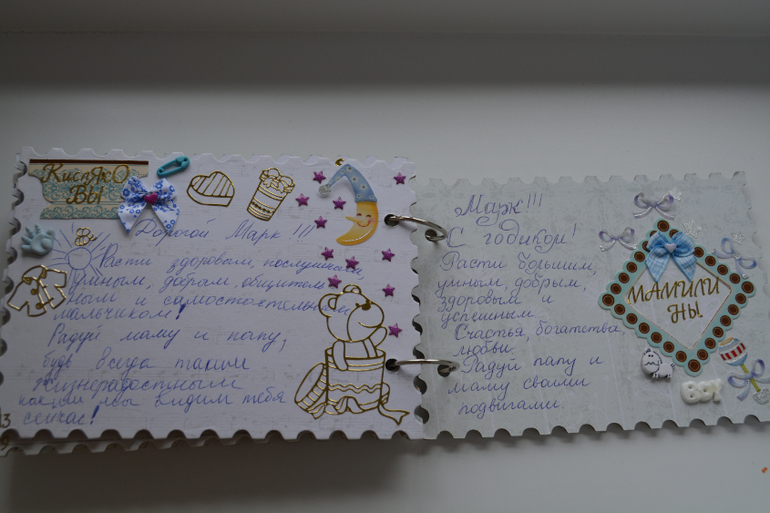 КисляКО
ВЫ
Дорогой Марк !!!
Расти здоровым, послушным
умным, добрым, общитель
ным и самостоятельным
мальчиком!
Радуй маму и папу,
будь всегда таким
жизнерадостным
каким мы видим тебя
сейчас!
Марк!!!
С годиком!
Расти большим,
умным, добрым,
здоровым и
успешным.
Счастья, богатства
любви.
Радуй папу и
маму своими
подвигами.
МАМИЛИ
НЫ!
BOY
13